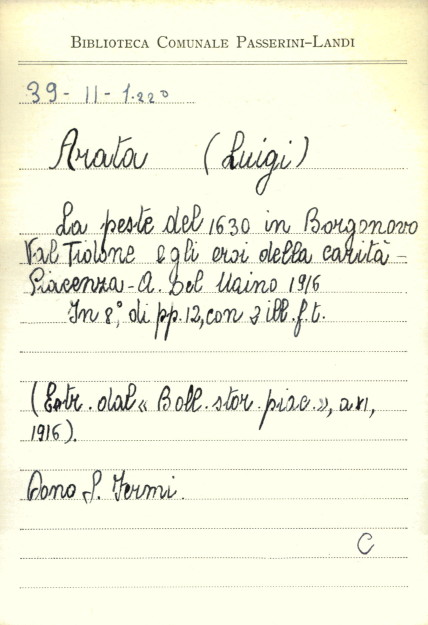 BIBLIOTECA COMUNALE PASSERINI-LANDI
39 - II - 1.220
Arata (Luigi)
La peste del 1630 in Borgonovo
Val Tidone e gli eroi della carità -
Piacenza - A. Del Maino 1916
In 8°, di pp. 12, con 3 ill. f. t.
(Estr. dal « Boll. stor. piac. », a XI,
1916).
Dono S. Fermi.
C